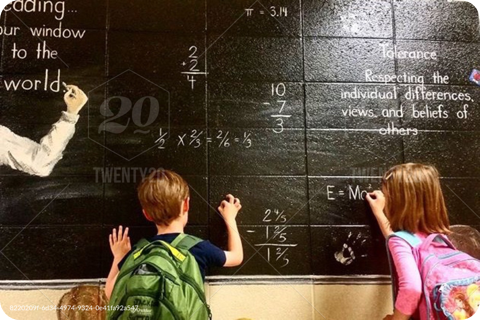 eading...
our window
to the
world.
π = 3.14
2
+ 2
4
10
- 7
3
Tolerance
Respecting the
individual differences,
views, and beliefs of
others
1/2 x 2/3 = 2/6 = 1/3
E = M
2 4/5
- 1 2/5
1 2/5
20
TWENTY20